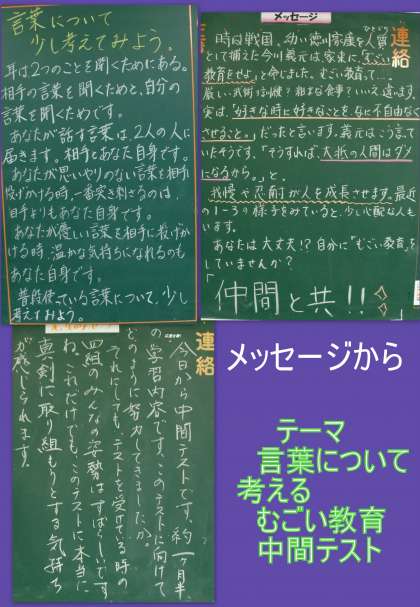 言葉について
少し考えてみよう。
耳は2つのことを聞くためにある。
相手の言葉を聞くためと、自分の
言葉を聞くためです。
あなたが話す言葉は、2人の人に
届きます。相手とあなた自身です。
あなたが思いやりのない言葉を相手に
投げかける時、一番突き刺さるのは、
相手よりもあなた自身です。
あなたが優しい言葉を相手に投げか
ける時、温かな気持ちになれるのも
あなた自身です。
普段使っている言葉について、少し
考えてみよう。
メッセージ
連絡
時は戦国、幼い徳川家康を人質
ひとじち
として捕えた今川義元は家来に、「むごい
教育をせよ」と命じました。むごい教育って…。
厳しい武術の訓練?粗末な食事?いいえ違います。
実は、「好きな時に好きなことを、なに不自由なく
させること。」だったと言います。義元はこう言って
いたそうです。「そうすれば、大抵の人間はダメ
になるから。」と。
我慢や忍耐が人を成長させます。最近
の1-3の様子をみていると、少し心配な人も
います。
あなたは大丈夫!?自分に「むごい教育」を
していませんか?
「仲間と共!!」
連絡
今日から中間テストです。約一ヶ月半
の学習内容です。このテストに向けて
どのように努力してきましたか。
それにしても、テストを受けている時の
四組のみんなの姿勢はすばらしいです
ね。これだけでも、このテストに本当に
真剣に取り組もうとする気持ち
が感じられます。
メッセージから
テーマ
言葉について
考える
むごい教育
中間テスト